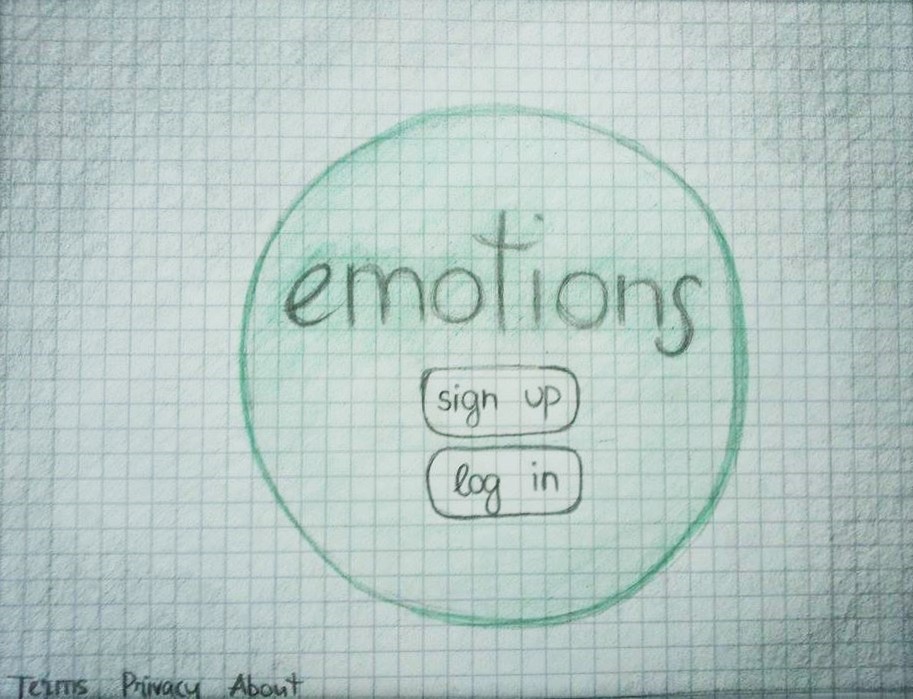 emotions
sign up
log in
Terms Privacy About